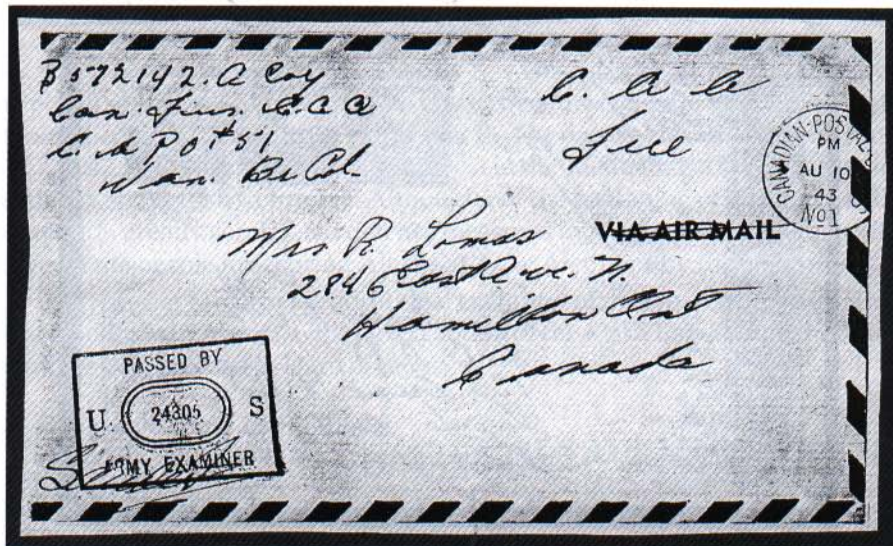 B 572142. A Coy
Can. Fus. C.A.A
C.A P O #51
Van. Br Col.
C. A A
Free
CANADIAN·POSTAL
PM
AU 10
43
No 1
VIA AIR MAIL
Mrs R. Lomas
284 East Ave. N.
Hamilton Ont
Canada
PASSED BY
U. 24305 S
ARMY EXAMINER